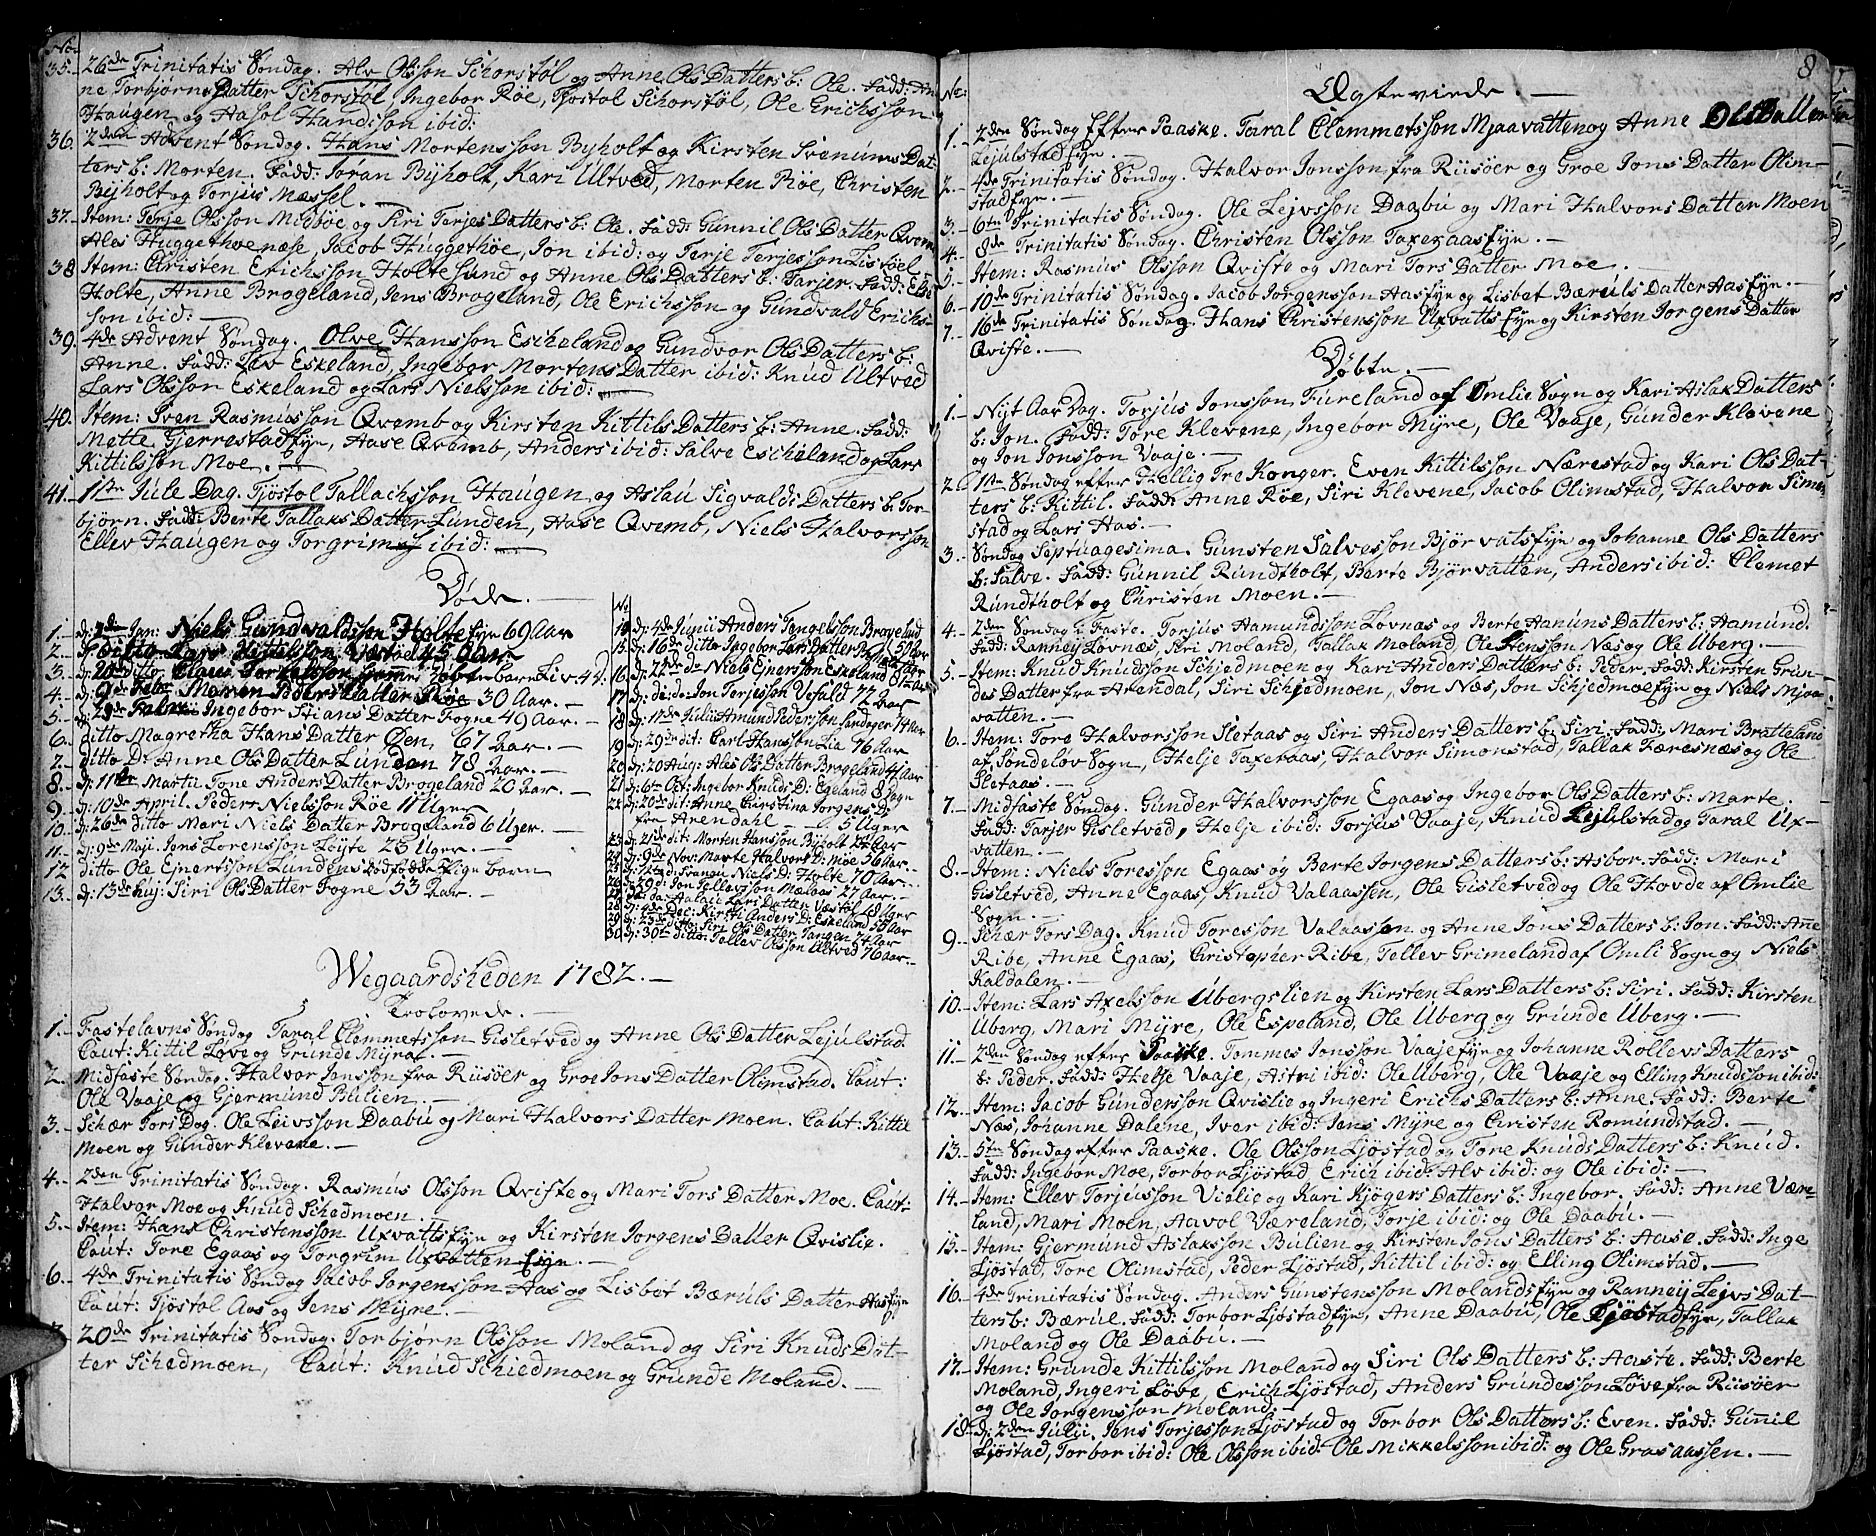 No.
35. 26de Trinitatis Søndag. Alv Olsson Schorstøl og Anne Ols Datters b: Ole. Fadd: An-
ne Torbjørns Datter Schorstøl, Ingebor Røe, Tjostol Schorstøl, Ole Erichsson
Haugen og Aasol Handsson ibid:
36. 2den Advent Søndag. Hans Mortensson Byholt og Kirsten Svenúms Dat-
ters b: Morten. Fadd: Joran Byholt, Kari Ultved, Morten Røe, Christen
Byholt og Torjus Mæssel.
37. Item: Terje Olsson Midbøe og Siri Tarjes Datters b: Ole. Fadd: Gunnil Ols Datter Qvemb
Ales Huggethoenæse, Jacob Huggethøe, Jon ibid: og Terje Terjesson Listøel
38 Item: Christen Erichsson Holte sund og Anne Ols Datters b: Tarjer. Fadd: Elbi
Holte, Anne Brogeland, Jens Brogeland, Ole Erichsson og Gundvald Erichs-
son ibid:
39. 4de Advent Søndag. Olve Hansson Escheland og Gundvor Ols Datters b:
Anne. Fadd: Liv Eskeland, Ingebor Mortens Datter ibid: Knud Ultved
Lars Olsson Eskeland og Lars Nielsson ibid:
40. Item: Sven Rasmusson Qvemb og Kirsten Kittils Datters b: Anne. Fadd:
Mette Gjerrestadfyn, Aase Qvemb, Anders ibid: Salve Escheland og Lars
Kittilsson Moe.
41. 1ste Jule Dag. Tjøstol Tallachsson Haugen og Aslau Sigvalds Datters b: Tor-
bjørn. Fadd: Berte Tallaks Datter Lunden, Aase Qvemb, Niels Halvorsson
Ellev Haugen og Torgrim ibid:
Døde.
1. d: 2den Jan: Niels Gundvaldsson Holtefyn 69 Aar
2. 45 Aar
3. d: 20de ditto Claus Torkelsson
4. d: 9de Febr: Maren Peders Datter Røe 30 Aar.
5. Ingebor Stians Datter Fogne 49 Aar.
6. ditto Magretha Hans Datter Øen, 67 Aar.
7. ditto D: Anne Ols Datter Lunden 78 Aar.
8. d: 11te Martii Tone Anders Datter Brogeland 20 Aar.
9. d: 10de April. Peder Nielsson Røe 11 Uger
10. d: 26de ditto Mari Niels Datter Brogeland 6 Uger.
11. d: 9de Maji. Jens Lorensson Løyte 23 Uger.
12 ditto Ole Ejnertsson Lundens dødfødde Pige barn
13. d: 13de huj: Siri Ols Datter Fogne 53 Aar.
No
14 d: 4de Junii Anders Tengelsson Brogeland
15. d: 16de ditto Ingebor Lars Datter 50 Aar
16 d: 22de dn Niels Enersson Eskeland
17 d: di: do: Jon Terjesson Vefald 72 Aar
18 d: 17de Julii Amund Pedersson Sandager 14 Aar
19 d: 29de dit: Carl Hansson Lia 76 Aar
20 d: 20 Aug: Ales Ols Datter Brogeland 41 Aar
21 d: 6te Oct: Ingebor Knuds D: Egeland 8 Dage
22 d: 20de dit: Anne Christina Jorgens D:
fra Arendahl 5 Uger
23 d: 21de dit: Morten Hansson Byholt 24 Aar
24 d: 9de Nov: Marte Halvors D: Møe 56 Aar.
25 d: 12te d: Svanau Niels D: Holte 70 Aar.
26 d: 29 d: Jon Tellevsson Mælaas 27 Aar.
27 da: Aalau Lars Datter Væstøl 18 Uger
28 d: 4de Dec: Kirsti Anders D: Eskeland 58 Aar
29 d: 25de ditto: Siri Ols Datter Tangen 24 Aar
30 d: 30te ditto: Tellev Olsson Ultved 76 Aar.
Wegaardsheden 1782.
Trolovede.
1. Fastelavns Søndag Taral Clemmetsson Gisletved og Anne Ols Datter Lejulstad.
Caut: Kittil Løve og Grunde Myra.
2. Midfaste Søndag. Halvor Jonsson fra Riisøer og Groe Jons Datter Olimstad. Caut:
Ole Vaaje og Gjermund Bulien.
3. Schær Tors Dag. Ole Leivsson Daabu og Mari Halvors Datter Moen. Caut: Kittil
Moen og Gunder Klevene.
4. 2den Trinitatis Søndag. Rasmus Olsson Qviste og Mari Tors Datter Moe. Caut:
Halvor Moe og Knud Schedmoen.
5. Item: Hans Christensson Uxvattsfyn og Kirsten Jorgens Datter Qvislie.
Caut: Tore Egaas og Torgrim Uxvatten fyn.
6. 4de Trinitatis Søndag Jacob Jorgensson Aas og Lisbet Bæruls Datter Aasfyn
Caut: Tjøstol Aas og Jens Myre.
20de Trinitatis Søndag. Torbjørn Olsson Moland og Siri Knuds Dat-
ter Schedmoen, Caut: Knud Schiedmoen og Grunde Moland.
8
No:
Ægteviede.
1. 2den Søndag Effter Paaske. Taral Clemmetsson Mjaavatten og Anne Ols Datter
Lejulstadfyn.
2. 4de Trinitatis Søndag. Halvor Jonsson fra Riisøer og Groe Jons Datter Olim-
stadfyn.
3. 6te Trinitatis Søndag. Ole Lejvsson Daabu og Mari Halvors Datter Moen
4. 8de Trinitatis Søndag. Christen Olsson Taxeraasfyn.
5. Item: Rasmus Olsson Qviste og Mari Tors Datter Moe.
6. 10de Trinitatis Søndag. Jacob Jorgensson Aasfyn og Lisbet Bæruls Datter Aasfyn.
7. 16de Trinitatis Søndag. Hans Christensson Uxvattsfyn og Kirsten Jorgens Datter
Qviste.
Døbte.
1. Nyt Aar Dag. Torjus Jonsson Fureland af Omlie Sogn og Kari Aslak Datters
b: Jon. Fadd: Tore Klevene, Ingebor Myre, Ole Vaaje, Gunder Klevene
og Jon Jonsson Vaaje.
2. 1ste Søndag effter Hellig Tre Konger. Even Kittilsson Nærestad og Kari Ols Dat-
ters b: Kittil. Fadd: Anne Røe, Siri Klevene, Jacob Olimstad, Halvor Simon
stad og Lars Aas.
3. Søndag Septuagesima. Gunsten Salvesson Bjørvatsfyn og Johanne Ols Datters
b: Salve. Fadd: Gunnil Rundtholt, Berte Bjørvatten, Anders ibid: Clemet
Rundtholt og Christen Moen.
4. 2den Søndag i Faste. Torjus Aamundsson Lovnæs og Berte Hanuns Datters b: Aamund.
Fadd: Ranney Lovnæs, Siri Moland, Tallak Moland, Ole Svensson Næs og Ole Uberg.
5. Item: Knud Knudsson Schjedmoen og Kari Anders Datters b: Peder. Fadd: Kirsten Grun-
des Datter fra Arendal, Siri Schjedmoen, Jon Næs, Jon Schjedmoefyn og Niels Mjaa-
vatten.
6. Item: Tore Halvorsson Sletaas og Siri Anders Datters b: Siri. Fadd: Mari Bratteland
af Søndeløv Sogn, Helje Taxeraas, Halvor Simonstad, Tallak Færesnæs og Ole
Sletaas.
7. Midfaste Søndag. Gunder Halvorsson Egaas og Ingebor Ols Datters b: Marte.
Fadd: Tarjer Gisletved, Helje ibid: Torjus Vaaje, Knud Lejulstad og Taral Ux-
vatten.
8. Item: Niels Toresson Egaas og Berte Jorgens Datters b: Asbor. Fadd: Mari
Gisletved, Anne Egaas, Knud Valaassen, Ole Gisletved og Ole Hovde af Omlie
Sogn.
9. Schær Tors Dag. Knud Toresson Valaassen og Anne Jons Datters b: Jon. Fadd: Anne
Ribe, Anne Egaas, Christopher Ribe, Tellev Grimeland af Omli Sogn og Niels
Kaldalen.
10. Item: Lars Axelsson Ubergslien og Kirsten Lars Datters b: Siri. Fadd: Kirsten
Uberg, Mari Myre, Ole Espeland, Ole Uberg og Grunde Uberg.
11. 2den Søndag effter Paaske. Tommes Jonsson Vaajefyn og Johanne Rollevs Datters
b: Peder. Fadd: Helje Vaaje, Astri ibid: Ole Uberg, Ole Vaaje og Elling Knudsson ibid:
12. Item: Jacob Gundersson Qvislie og Ingeri Erichs Datters b: Anne. Fadd: Berte
Næs, Johanne Dalene, Iver ibid: Jens Myre og Christen Romundstad.
13. 5te Søndag effter Paaske. Ole Olsson Ljøstad og Tore Knuds Datters b: Knud.
Fadd: Ingebor Moe, Torbor Ljøstad, Erich ibid: Alv ibid: og Ole ibid:
14. Item: Ellev Torjusson Vielie og Kari Kjøgers Datters b: Ingebor. Fadd: Anne Være-
land, Mari Moen, Aavol Væreland, Torje ibid: og Ole Daabu.
15. Item: Gjermund Aslaksson Bulien og Kirsten Jons Datters b: Aase. Fadd: Inge
Ljøstad, Tore Olimstad, Peder Ljøstad, Kittil ibid: og Elling Olimstad.
16. 4de Trinitatis Søndag. Anders Gunstensson Molandsfyn og Ranney Lejvs Dat-
ters b: Bærul. Fadd: Torbor Ljøstadfyn, Anne Daabu, Ole Ljøstadfyn, Tallak
Moland og Ole Daabu.
17. Item: Grunde Kittilsson Moland og Siri Ols Datters b: Aaste. Fadd: Berte
Moland, Ingeri Løve, Erich Ljøstad, Anders Grundesson Løve fra Riisøer
og Ole Jorgensson Moland.
18. d: 2den Julii. Jens Torjesson Ljøstad og Torbor Ols Datters b: Even. Fadd: Gunil
Ljøstad, Torbor ibid: Ole Olsson ibid: Ole Mikkelsson ibid: og Ole Grasaassen.